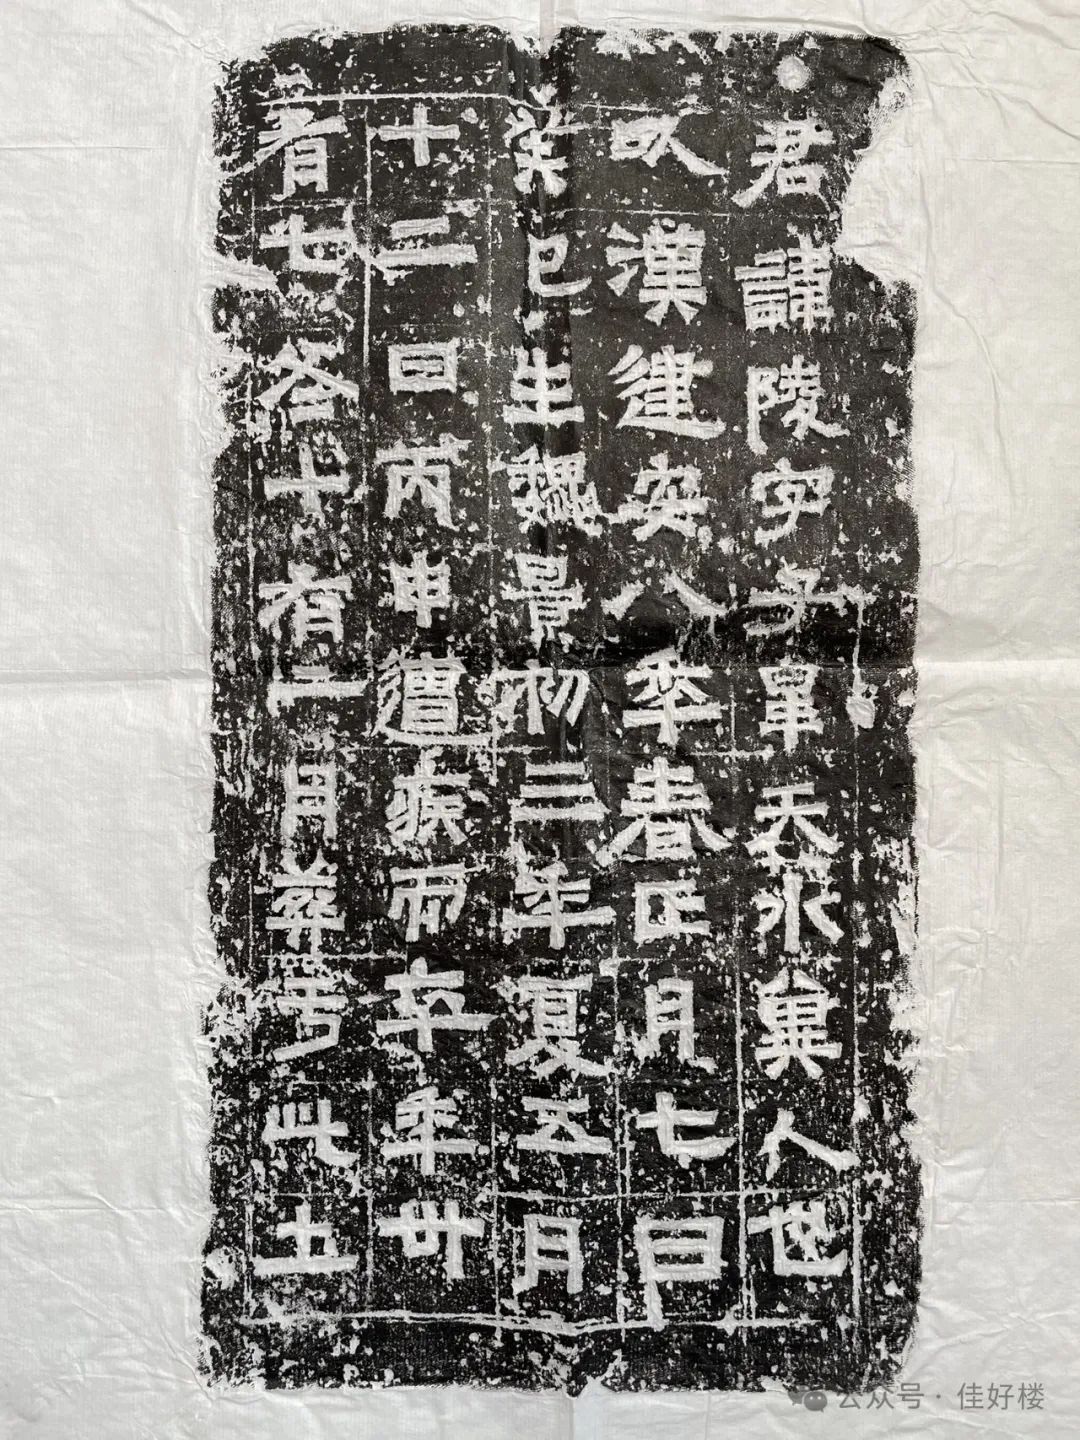 君諱陵字子皐天水冀人也
以漢建安八年春正月七日
癸巳生魏景初三年夏五月
十二日丙申遭疾而卒年卅
有七冬十有二月葬于此土
公众号·佳好楼